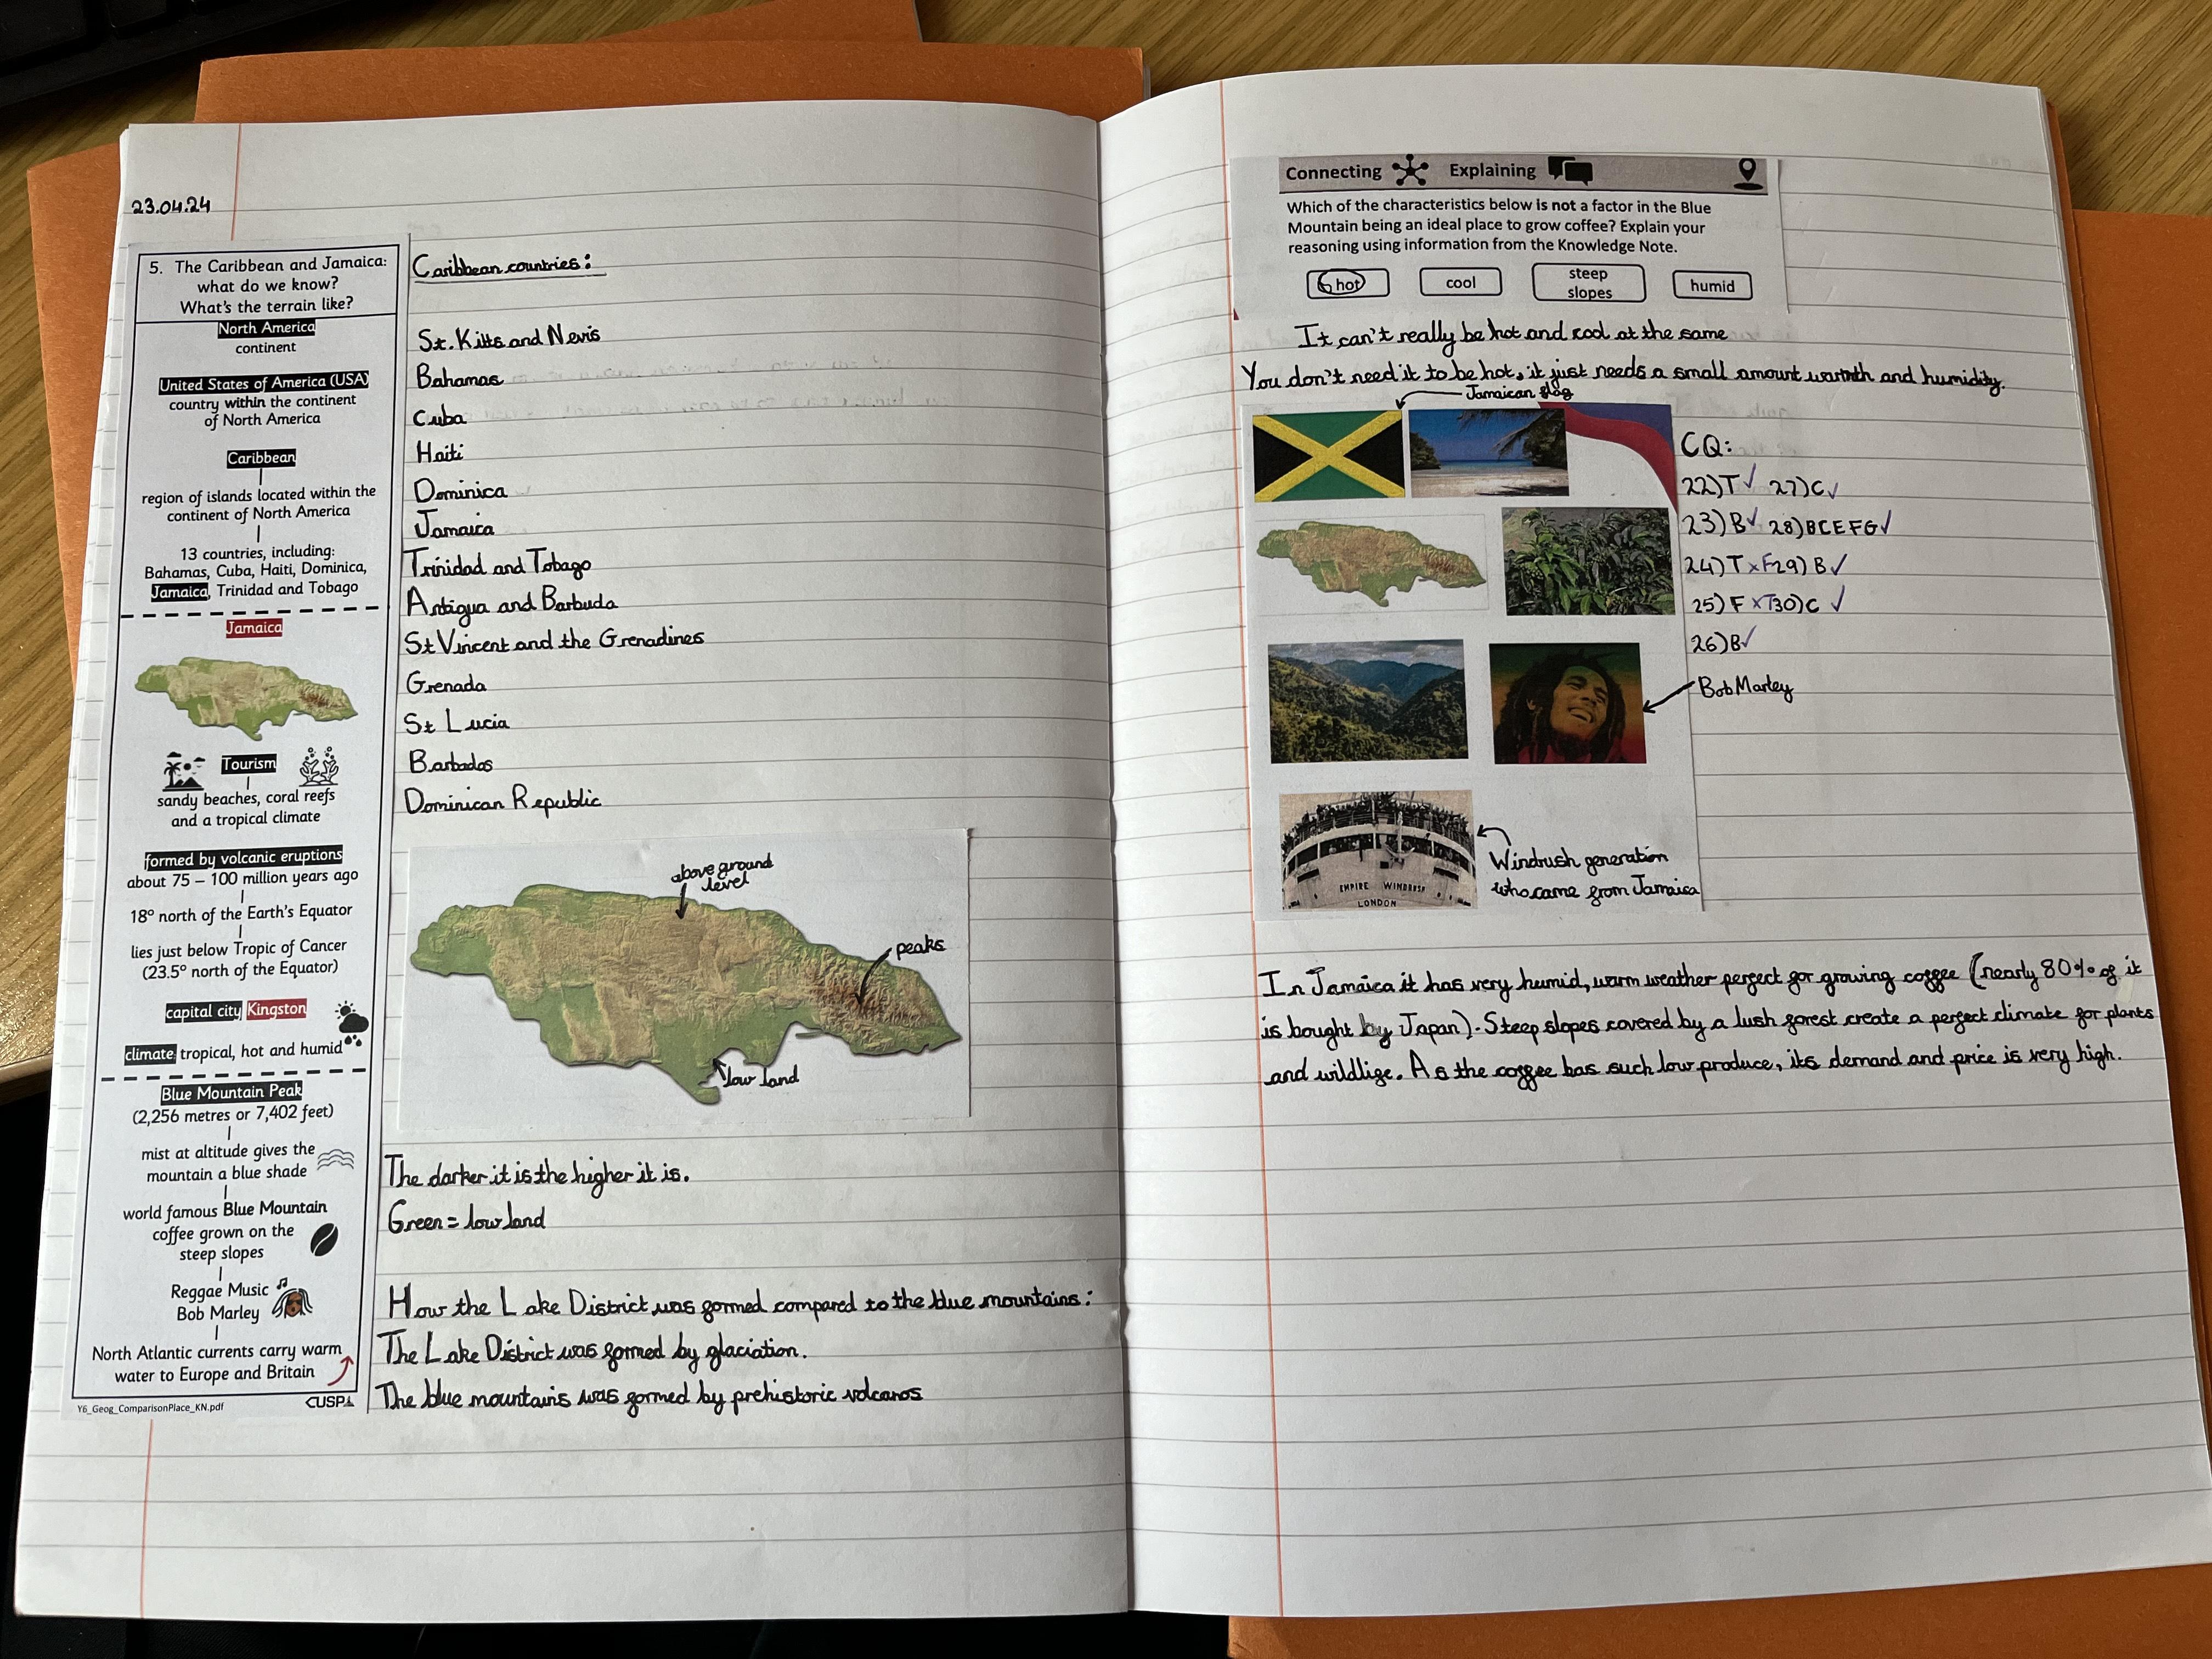 23.04.24
5. The Caribbean and Jamaica:
what do we know?
What's the terrain like?
North America
continent
United States of America (USA)
country within the continent
of North America
Caribbean
region of islands located within the
continent of North America
13 countries, including:
Bahamas, Cuba, Haiti, Dominica,
Jamaica, Trinidad and Tobago
Jamaica
Tourism
sandy beaches, coral reefs
and a tropical climate
formed by volcanic eruptions
about 75 – 100 million years ago
18° north of the Earth's Equator
lies just below Tropic of Cancer
(23.5° north of the Equator)
capital city Kingston
climate tropical, hot and humid
Blue Mountain Peak
(2,256 metres or 7,402 feet)
mist at altitude gives the
mountain a blue shade
world famous Blue Mountain
coffee grown on the
steep slopes
Reggae Music
Bob Marley
North Atlantic currents carry warm
water to Europe and Britain
Y6_Geog_ComparisonPlace_KN.pdf
CUSP
Caribbean countries:
St. Kitts and Nevis
Bahamas
Cuba
Haiti
Dominica
Jamaica
Trinidad and Tobago
Antigua and Barbuda
St Vincent and the Grenadines
Grenada
St Lucia
Barbados
Dominican Republic
above ground
level
peaks
low land
The darker it is the higher it is.
Green = low land
How the Lake District was formed compared to the blue mountains:
The Lake District was formed by glaciation.
The blue mountains was formed by prehistoric volcanos
Connecting Explaining
Which of the characteristics below is not a factor in the Blue
Mountain being an ideal place to grow coffee? Explain your
reasoning using information from the Knowledge Note.
hot cool steep slopes humid
It can't really be hot and cool at the same
You don't need it to be hot, it just needs a small amount warmth and humidity.
Jamaican flag
CQ:
22) T ✓ 27) C ✓
23) B ✓ 28) B C E F G ✓
24) T x F 29) B ✓
25) F x T 30) C ✓
26) B ✓
Bob Marley
EMPIRE WINDRUSH
LONDON
Windrush generation
who came from Jamaica
In Jamaica it has very humid, warm weather perfect for growing coffee (nearly 80% of it
is bought by Japan). Steep slopes covered by a lush forest create a perfect climate for plants
and wildlife. As the coffee has such low produce, its demand and price is very high.